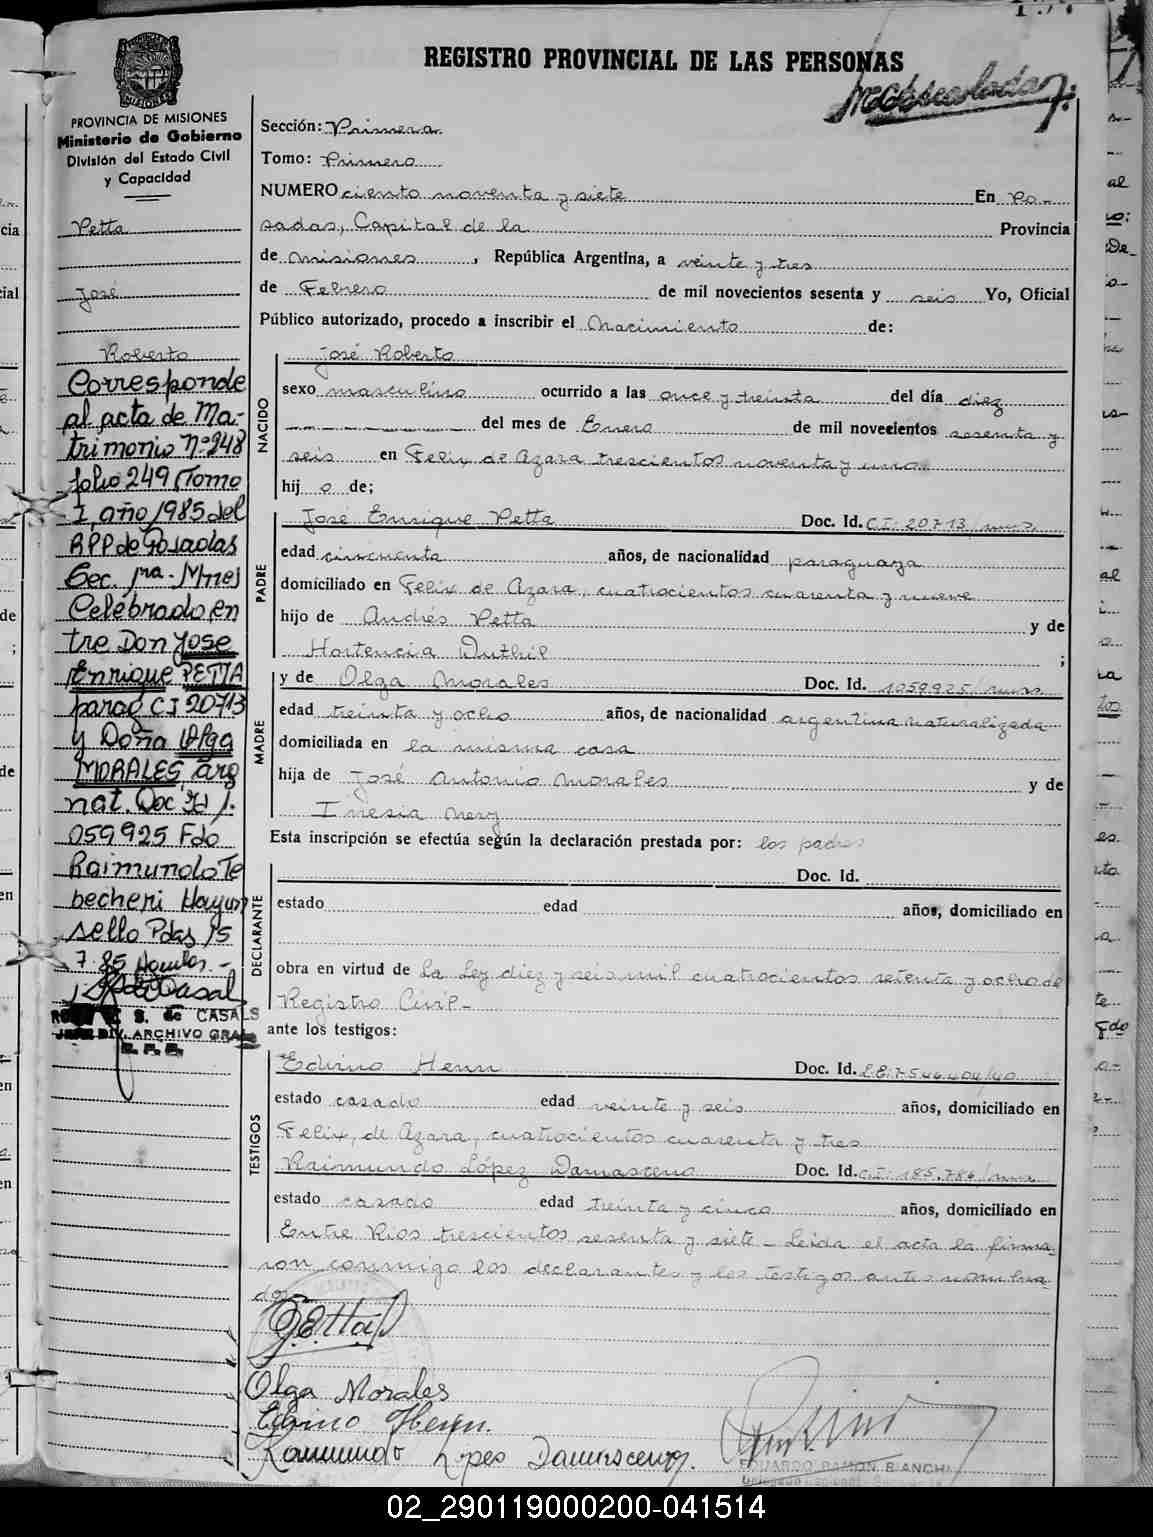 REGISTRO PROVINCIAL DE LAS PERSONAS
PROVINCIA DE MISIONES
Ministerio de Gobierno
División del Estado Civil
y Capacidad
Petta
José
Roberto
Corresponde
al acta de Ma-
trimonio Nº 248
folio 249 Tomo
I, año 1985 del
RPP de Posadas
Sec. 1ra. Mnes
Celebrado en
tre Don Jose
Enrique PETTA
parag CI 20713
y Doña Olga
MORALES, arg
nat. Doc Id 1.
059925 Fdo
Raimundo Te
becheri
sello Pdas 15
7.85
S. de CASALS
JEFE DIV. ARCHIVO GRAL
Sección: Primera
Tomo: Primero
NUMERO ciento noventa y siete En Po-
sadas, Capital de la Provincia
de Misiones, República Argentina, a veinte y tres
de Febrero de mil novecientos sesenta y seis Yo, Oficial
Público autorizado, procedo a inscribir el Nacimiento de:
NACIDO
José Roberto
sexo masculino ocurrido a las once y treinta del día diez
del mes de Enero de mil novecientos sesenta y
seis en Felix de Azara trescientos noventa y uno
hij o de;
PADRE
José Enrique Petta Doc. Id. C.I: 20713/mns
edad cincuenta años, de nacionalidad paraguaya
domiciliado en Felix de Azara, cuatrocientos cuarenta y nueve
hijo de Andrés Petta y de
Hortencia Duthil ;
MADRE
y de Olga Morales Doc. Id. 1059925/mns
edad treinta y ocho años, de nacionalidad argentina naturalizada
domiciliada en la misma casa
hija de José Antonio Morales y de
Inesia Nery
Esta inscripción se efectúa según la declaración prestada por: los padres
DECLARANTE
Doc. Id.
estado edad años, domiciliado en
obra en virtud de la Ley diez y seis mil cuatrocientos setenta y ocho de
Registro Civil-
ante los testigos:
TESTIGOS
Edvino Henn Doc. Id. L.E: 7.546.404/40
estado casado edad veinte y seis años, domiciliado en
Felix, de Azara, cuatrocientos cuarenta y tres
Raimundo López Damasceno Doc. Id. C.I: 185.786/mns
estado casado edad treinta y cinco años, domiciliado en
Entre Rios trescientos sesenta y siete - Leida el acta la firma-
ron conmigo los declarantes y los testigos antes nombra-
dos
Olga Morales
Edvino Henn.
Raimundo Lopes Damasceno.
EDUARDO RAMON BIANCHI
02_290119000200-041514